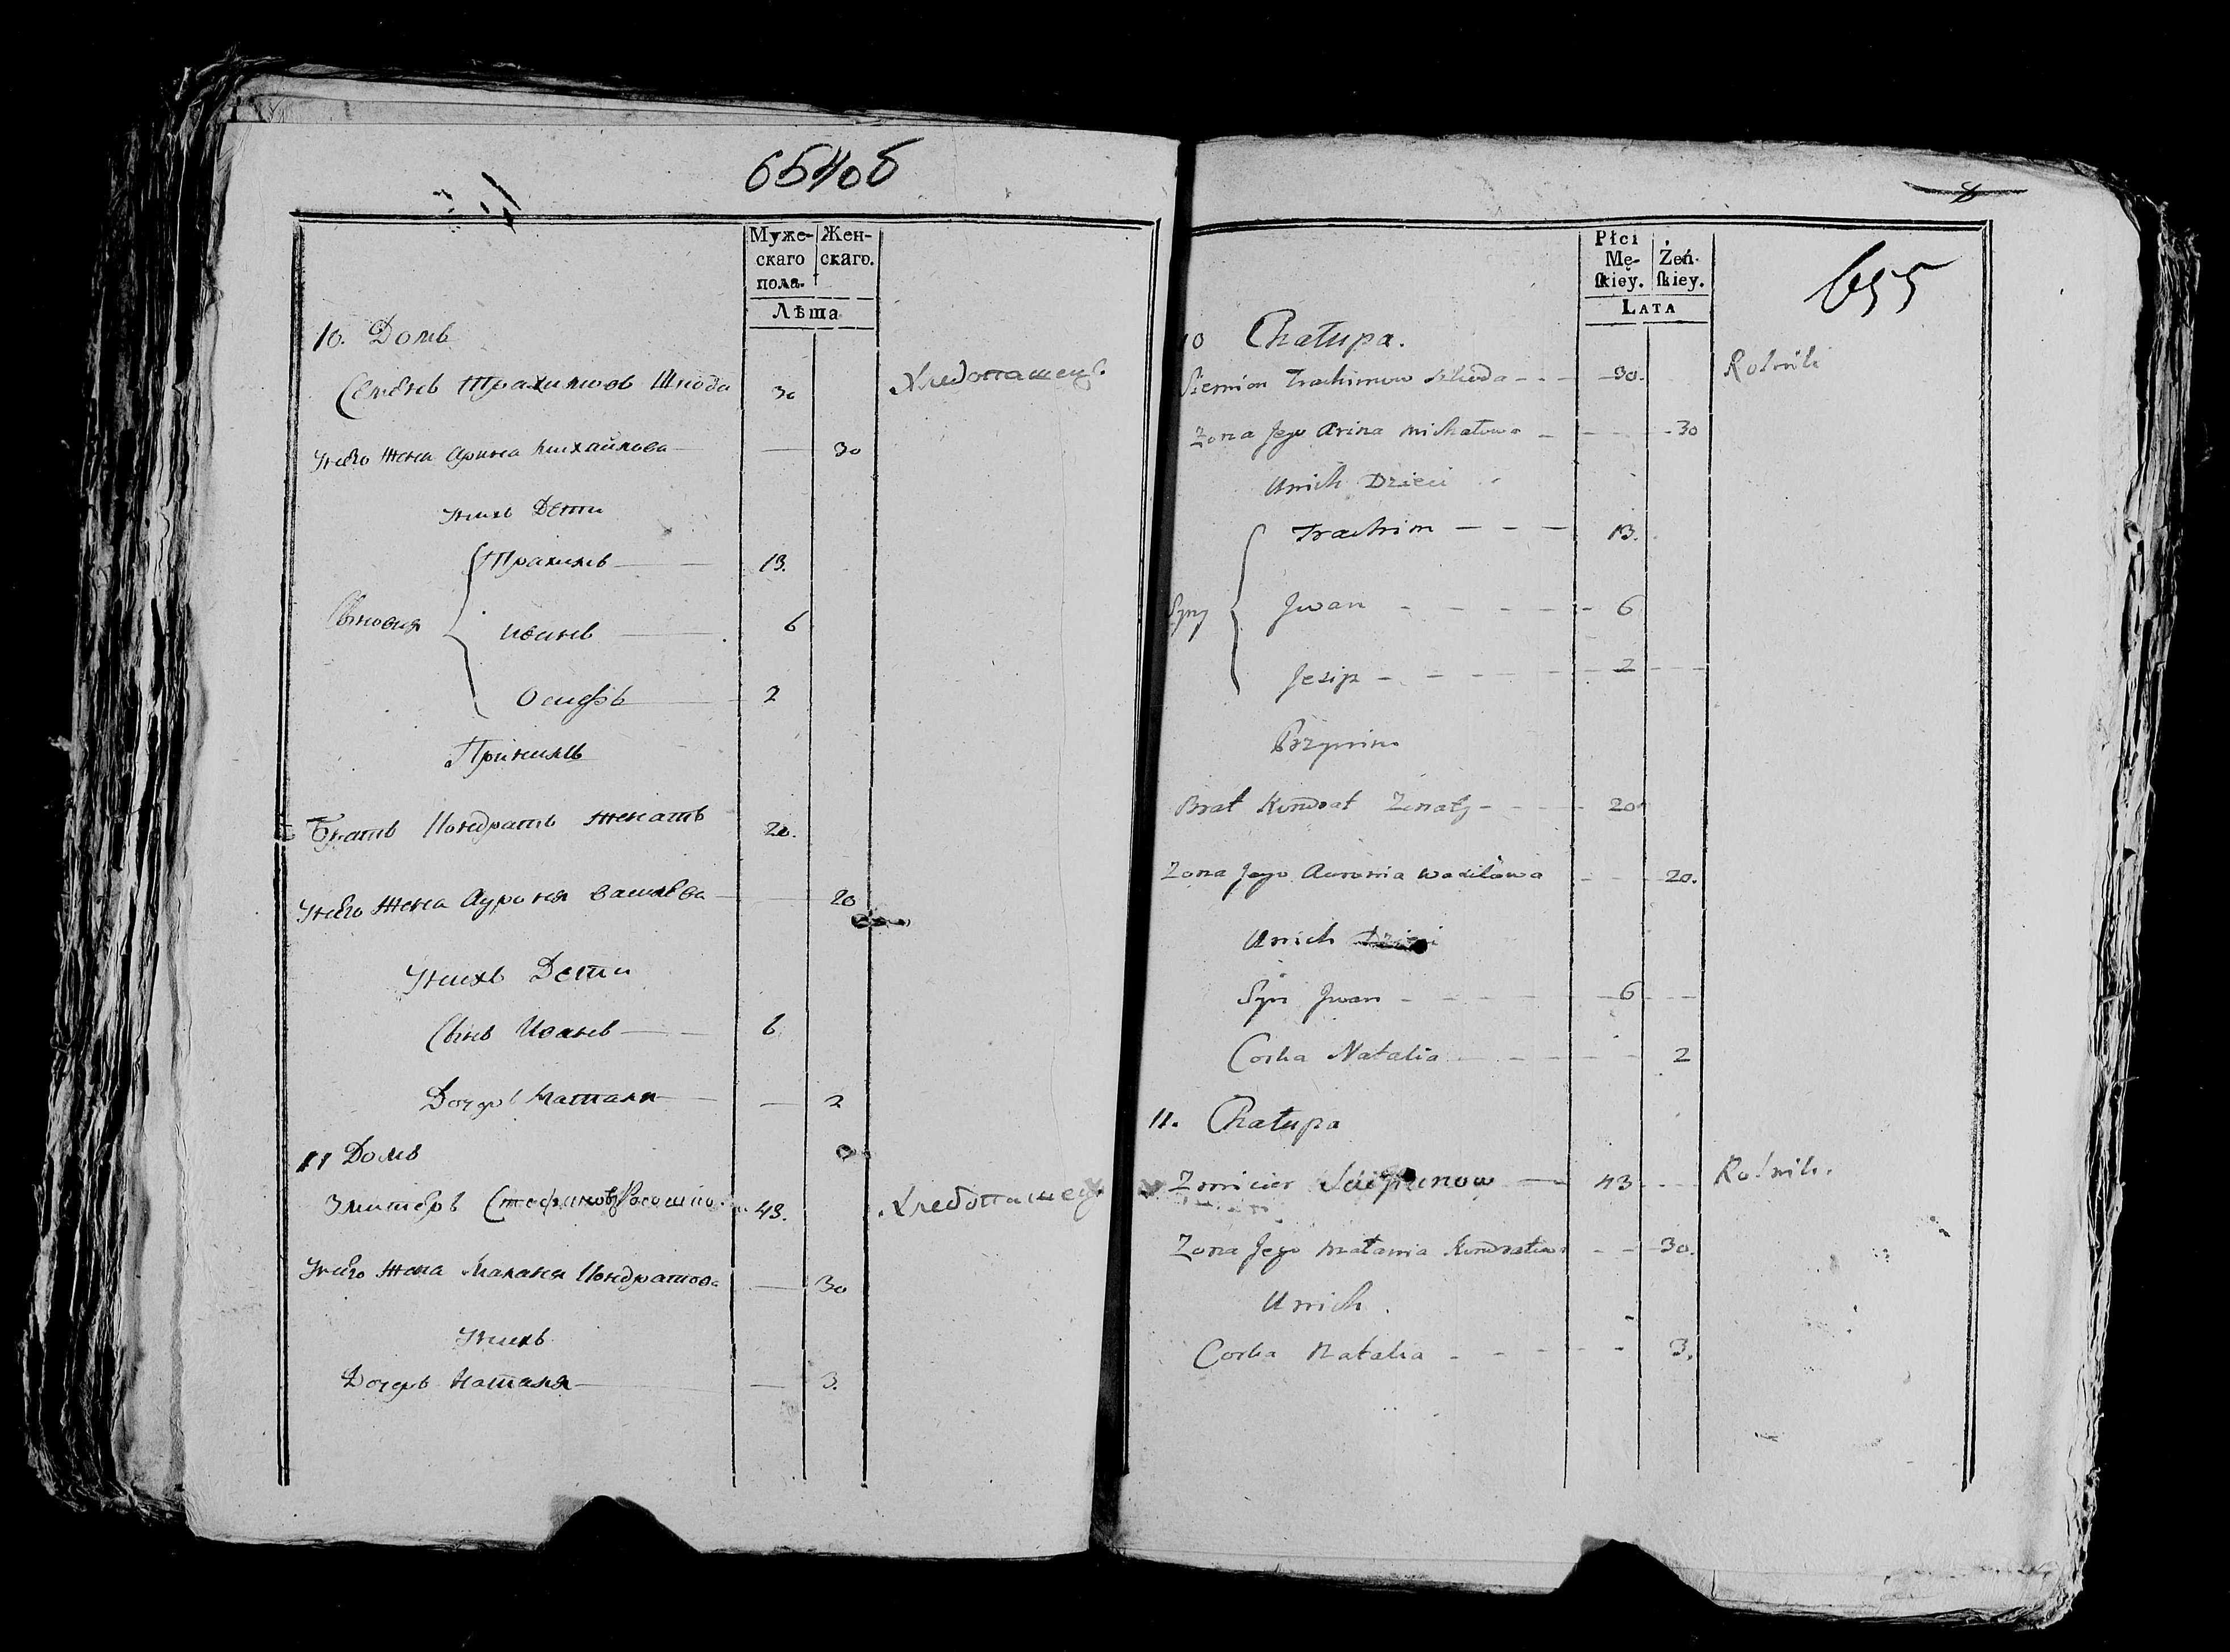 654об
Муже-
скаго
пола.
Жен-
скаго.
Лѣта
10. Домъ
Семенъ Трахимовъ Шкода 30 Хлебопашецъ
Унего жена Арина Михайлова 30
Унихъ Дети
Трахимъ 13.
Сыновья
Иванъ 6
Осифъ 2
Принимъ
Братъ Кондратъ женатъ 20.
Унего жена Ауроня Васильева 20
Унихъ Дети
Сынъ Иванъ 6
Дочеръ Наталя 2
11 Домъ
Змитеръ Стефановъ 43. Хлебопашецъ
Унего жена Маланя Кондратова 30
Унихъ
Дочеръ Наталя 3.
Płci
Mę-
ſkiey.
Żeń-
ſkiey.
LATA
655
10 Chałupa.
Siemion Trachimow Szkoda 30. Rolnik
Zona Jego Arina Michałowa 30
Unich Dzieci
Trachim 13.
Syny
Jwan 6
Jezip 2
Przynim
Brat Kondrat Zonaty 20
Zona Jego Auronia Wasilowa 20.
Unich Dzieci
Syn Jwan 6
Corka Natalia 2
11. Chałupa
Zmicier Sciepanow 43 Rolnik.
Zona Jego Małania Kondratowa 30.
Unich.
Corka Natalia 3.